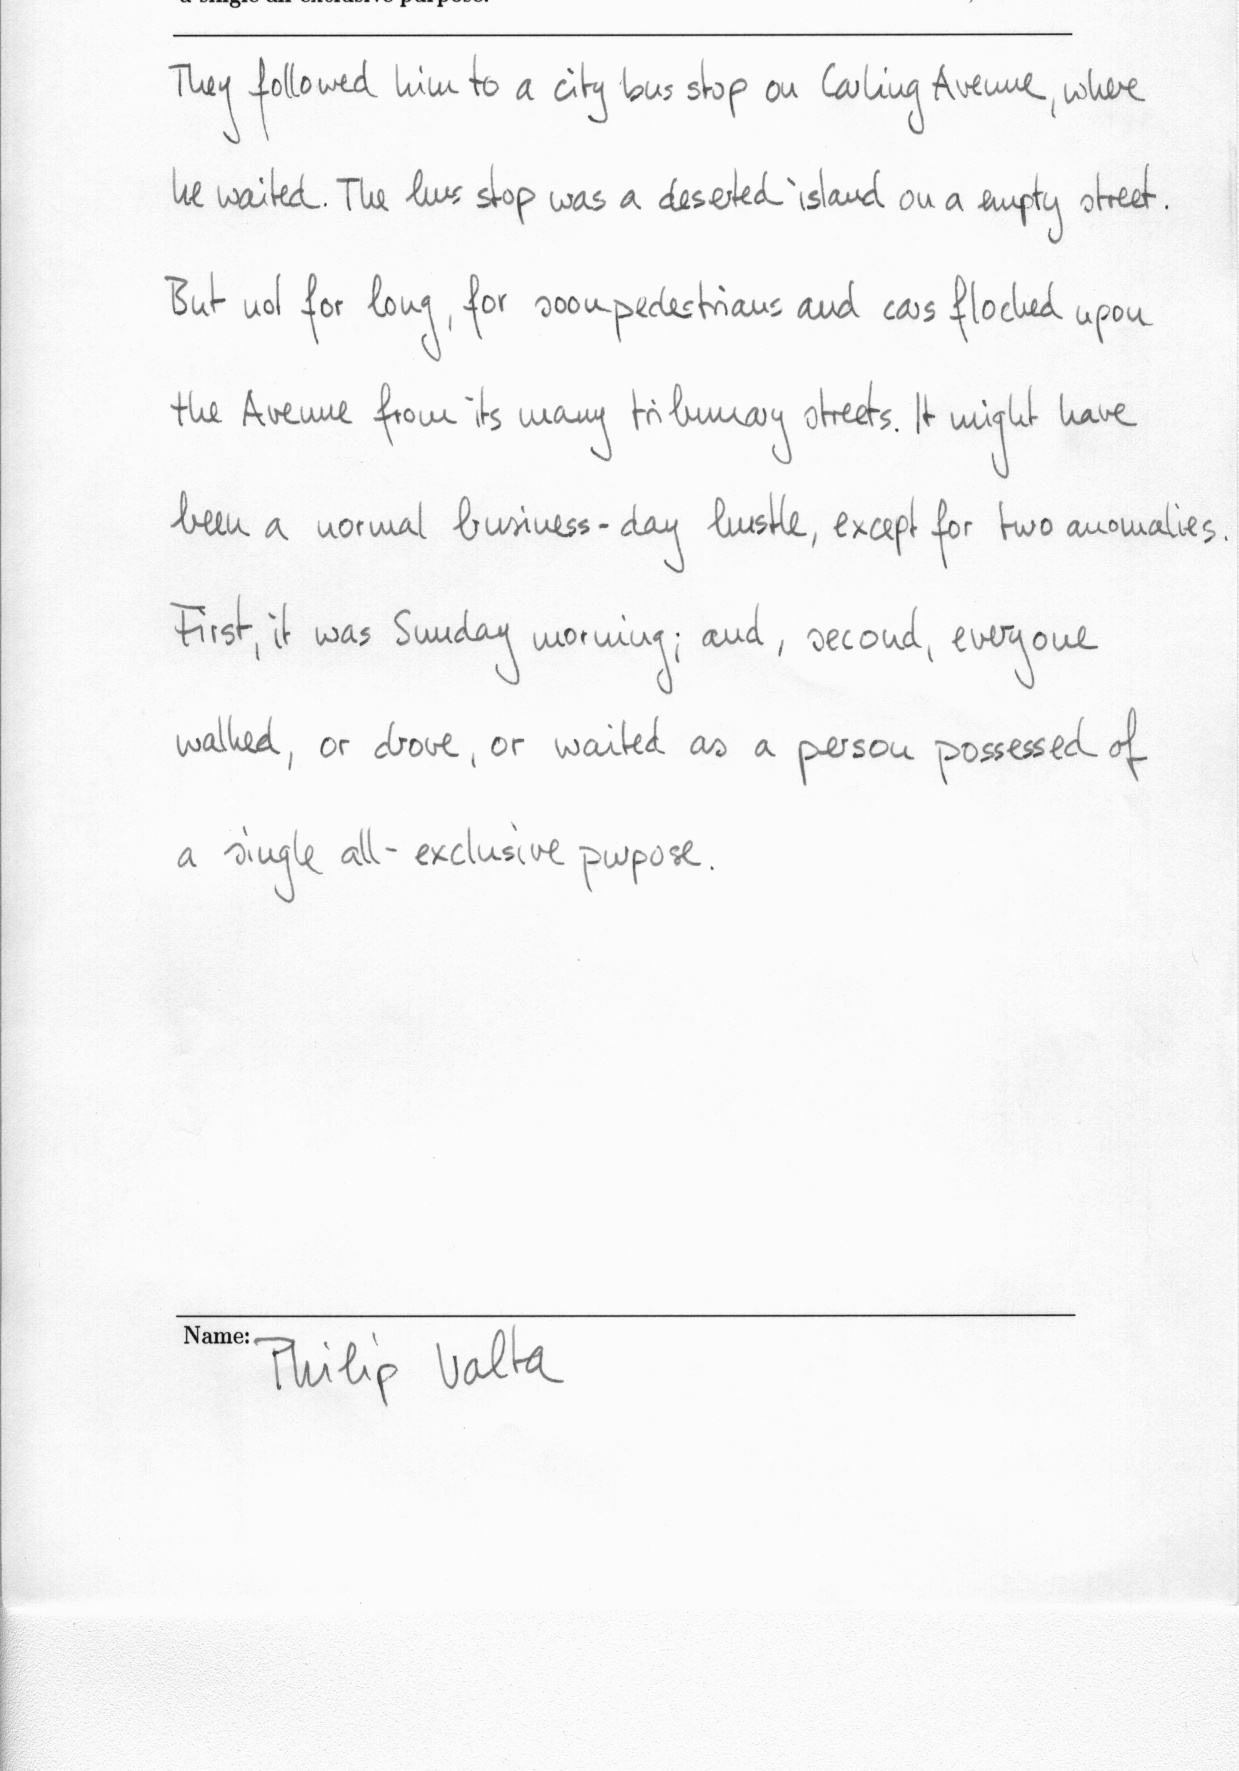 a single all-exclusive purpose.
They followed him to a city bus stop on Carling Avenue, where
he waited. The bus stop was a deserted island on a empty street.
But not for long, for soon pedestrians and cars flocked upon
the Avenue from its many tribunary streets. It might have
been a normal business-day bustle, except for two anomalies.
First, it was Sunday morning; and, second, everyone
walked, or drove, or waited as a person possessed of
a single all-exclusive purpose.
Name: Philip Valta